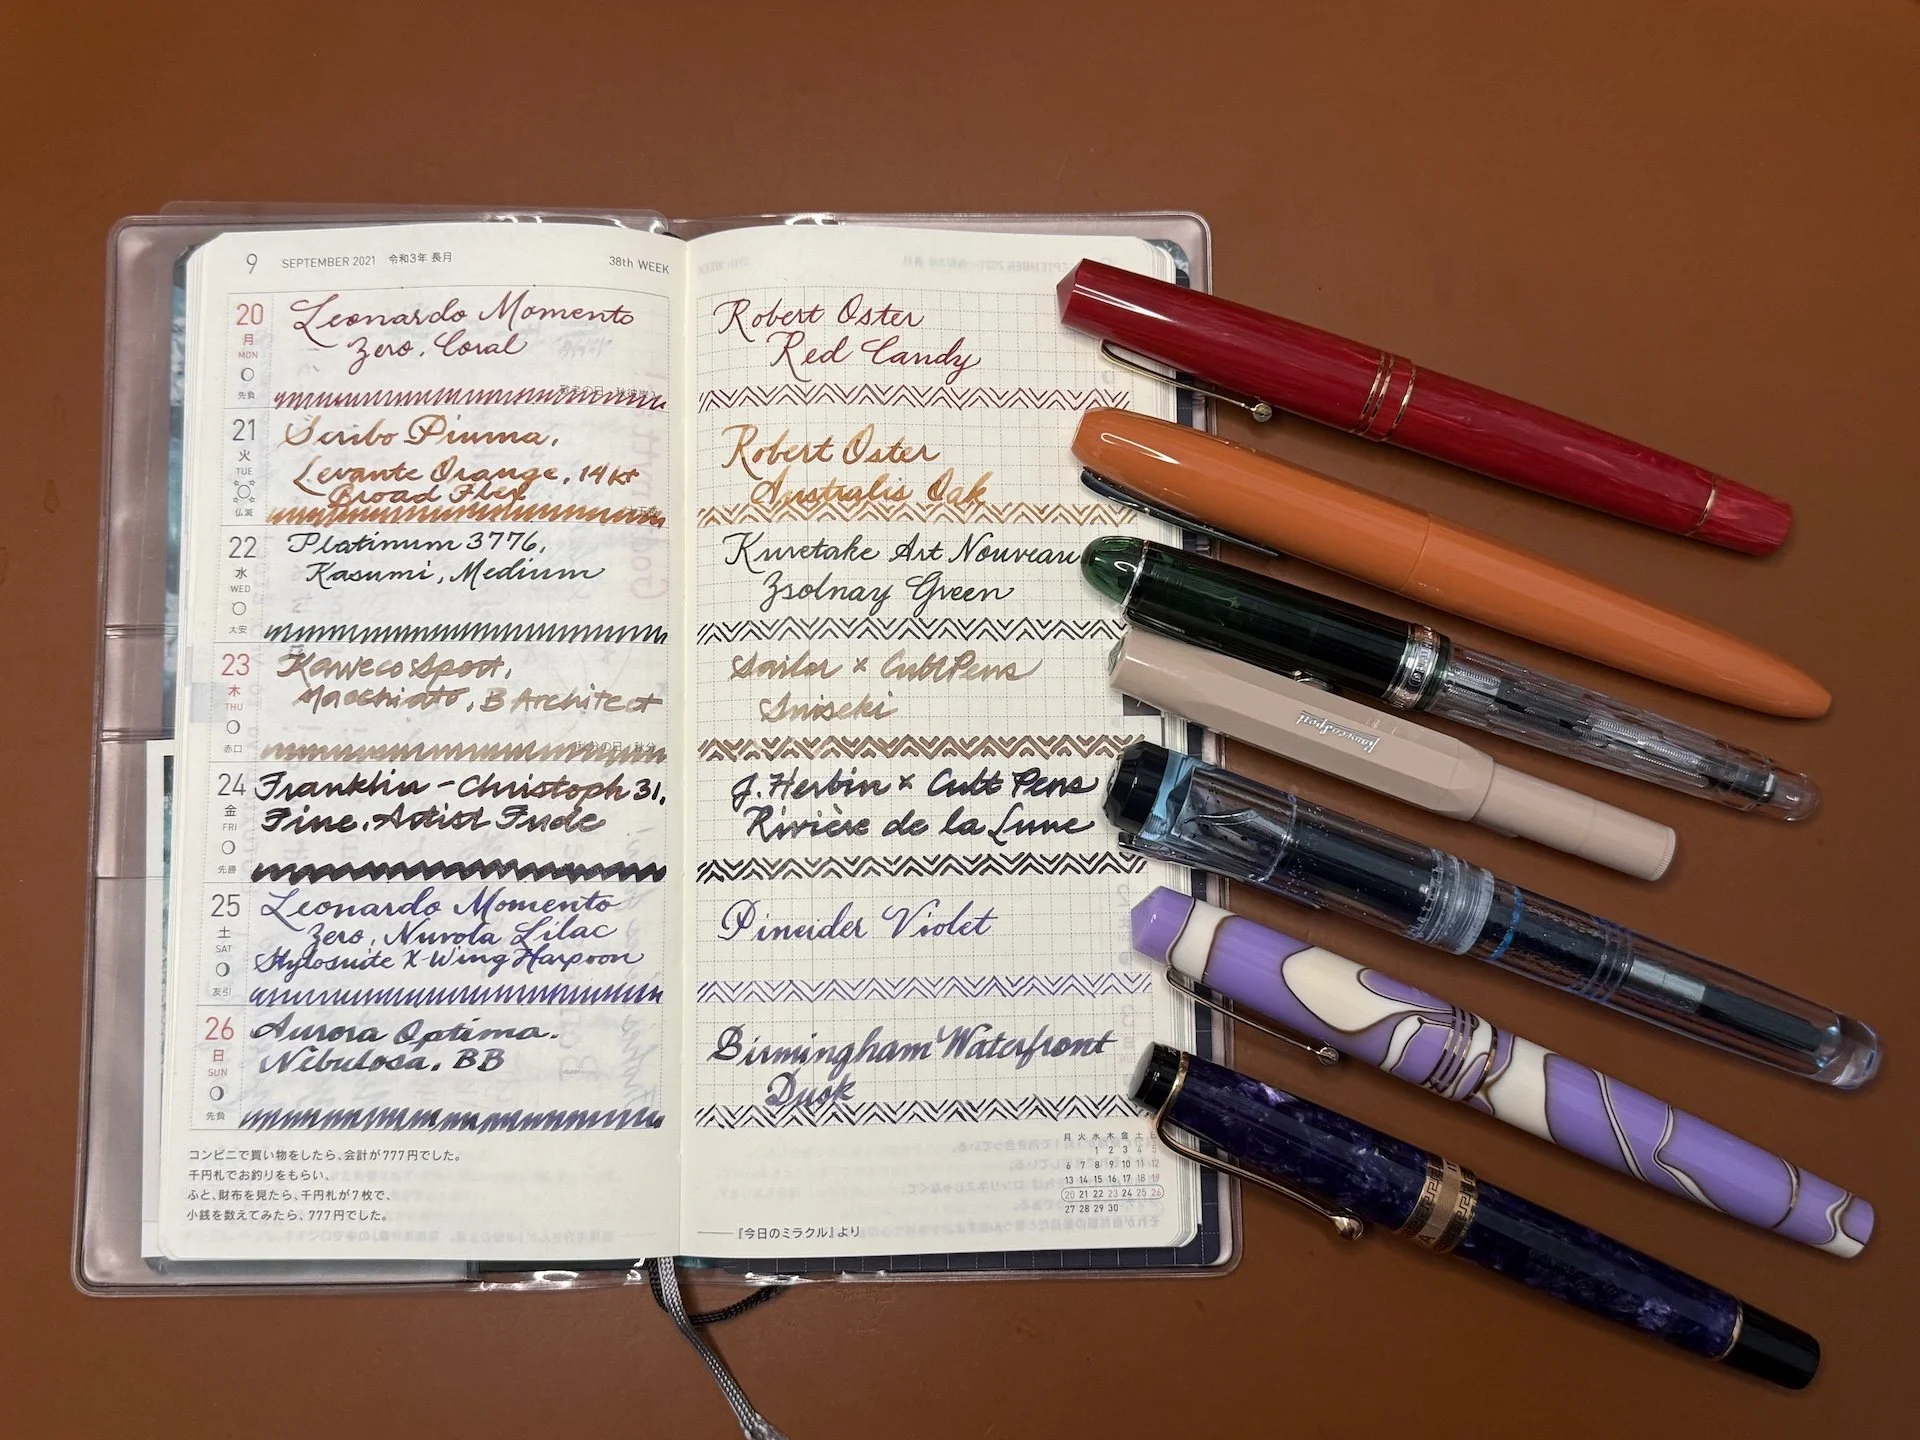 9 SEPTEMBER 2021 令和3年 長月 38th WEEK
20 月 MON 先負
Leonardo Momento
Zero, Coral
21 火 TUE 仏滅
Scribo Piuma,
Levante Orange, 14kt
Broad Flex
22 水 WED 大安
Platinum 3776,
Kasumi, Medium
23 木 THU 赤口
Kaweco Sport,
Macchiato, B Architect
24 金 FRI 先勝
Franklin-Christoph 31,
Fine, Artist Fude
25 土 SAT 友引
Leonardo Momento
Zero, Nuvola Lilac
Stylosuite X-Wing Harpoon
26 日 SUN 先負
Aurora Optima,
Nebulosa, BB
コンビニで買い物をしたら、会計が777円でした。
千円札でお釣りをもらい、
ふと、財布を見たら、千円札が7枚で、
小銭を数えてみたら、777円でした。
Robert Oster
Red Candy
Robert Oster
Australis Oak
Kuretake Art Nouveau
Zsolnay Green
Sailor x Cult Pens
Iniseki
J. Herbin x Cult Pens
Rivière de la Lune
Pineider Violet
Birmingham Waterfront
Dusk
月 火 水 木 金 土 日
1 2 3 4 5
6 7 8 9 10 11 12
13 14 15 16 17 18 19
20 21 22 23 24 25 26
27 28 29 30
『今日のミラクル』より
Kaweco Sport